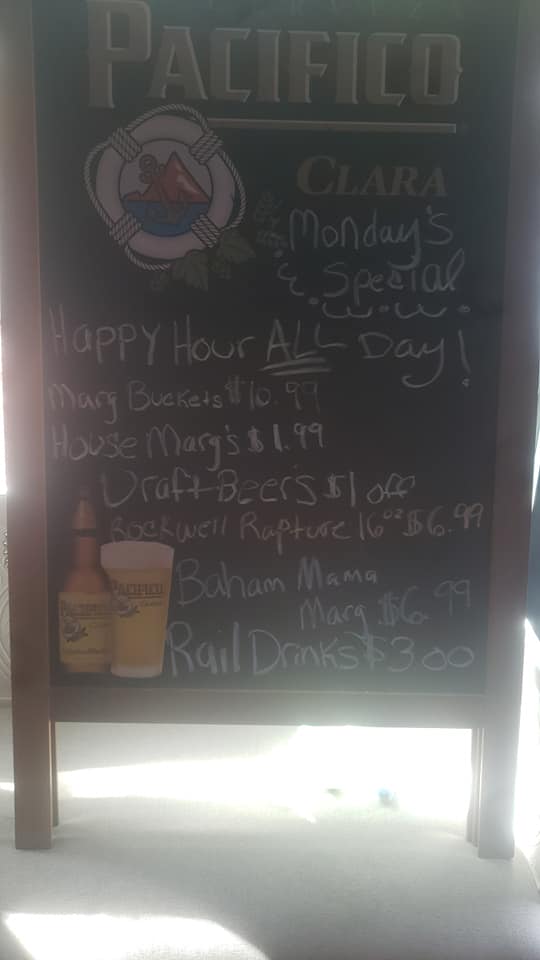 PACIFICO
CLARA
Monday's
& Special
Happy Hour ALL Day!
Marg Buckets $10.99
House Marg's $1.99
Draft Beer's $1 off
Rockwell Rapture 16oz $6.99
Baham Mama
Marg $6.99
Rail Drinks $3.00
PACIFICO
PACIFICO